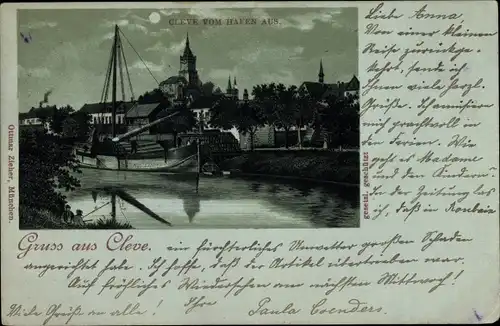 CLEVE VOM HAFEN AUS.
Ottmar Zieher, München.
gesetzl. geschützt
Gruss aus Cleve.
Liebe Anna,
Von einer kleinen
Reise zurückge-
kehrt, sende ich
Ihnen viele herzl.
Grüße. Ich amüsier
mich prachtvoll in
den Ferien. Wie
geht es Madame
und den Kindern?
In der Zeitung las
ich, daß in Roubaix
ein fürchterliches Unwetter großen Schaden
angerichtet habe. Ich hoffe, daß der Artikel übertrieben war.
Auf fröhliches Wiedersehen am nächsten Mittwoch!
Viele Grüße an alle! Ihre Paula Coenders.